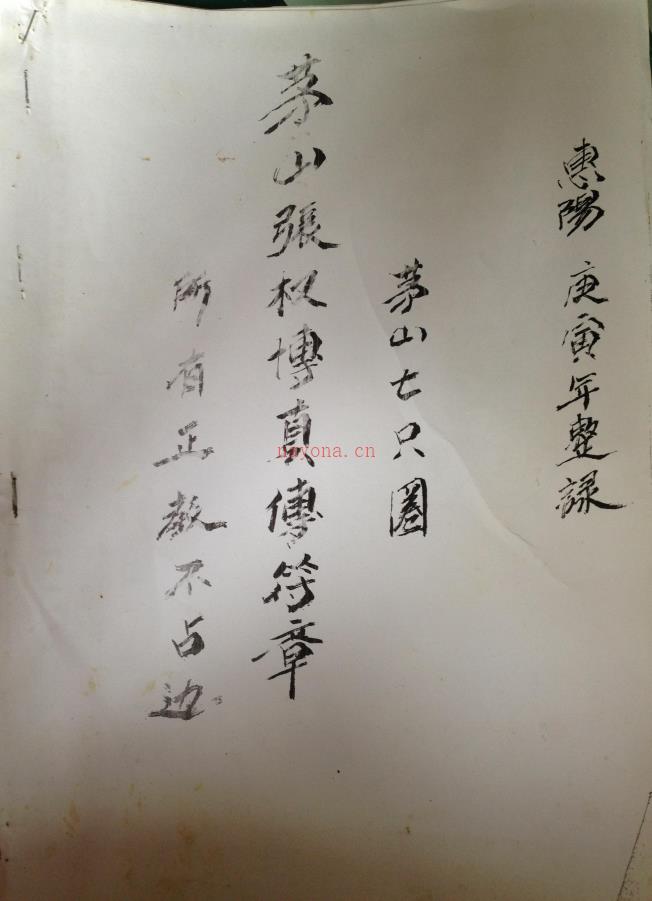 惠陽 庚寅年整録
茅山七只圈
茅山張权博真傳符章
所有正教不占边
nayona.cn